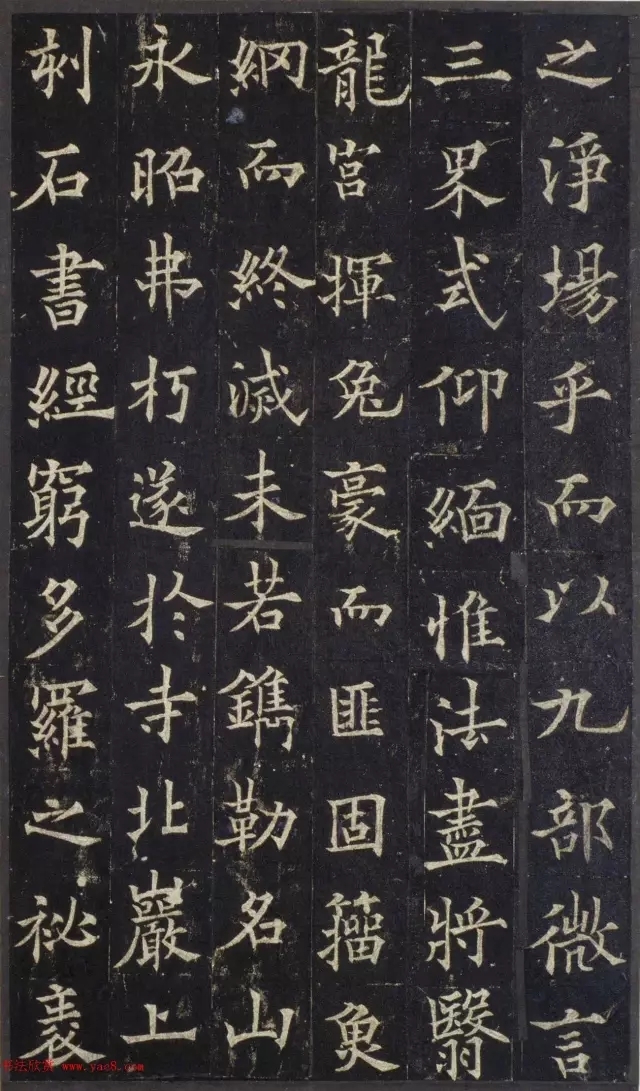 之淨場乎而以九部微言
三界式仰緬惟法盡將翳
龍宮揮兔豪而匪固籀魚
網而終滅未若鐫勒名山
永昭弗朽遂於寺北巖上
刺石書經窮多羅之祕義
书法欣赏 www.yac8.com